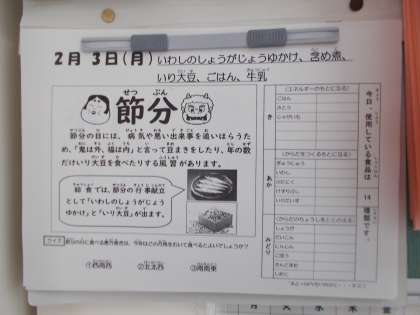 2月 3日(月) いわしのしょうがじょうゆかけ、含め煮、
いり大豆、ごはん、牛乳
節分
せつ ぶん
節分の日には、病気や悪い出来事を追いはらうた
め、「鬼は外、福は内」と言って豆まきをしたり、年の数
だけいり大豆を食べたりする風習があります。
給食では、節分の行事献立
として「いわしのしょうがじょう
ゆかけ」と「いり大豆」が出ます。
クイズ 節分の日に食べる恵方巻きは、今年はどの方角をむいて食べるとよいでしょうか?
①西南西 ②北北西 ③南南東
今日、使用している食品は 14 種類です。
(エネルギーのもとになる)
き
ごはん
さとう
じゃがいも
(からだをつくるもとになる)
あか
ぎゅうにゅう
いわし
とりにく
いりだいず
(からだのちょうしをととのえる)
みどり
しょうが
だいこん
にんじん
ごぼう
さんどまめ
月 火 水 木